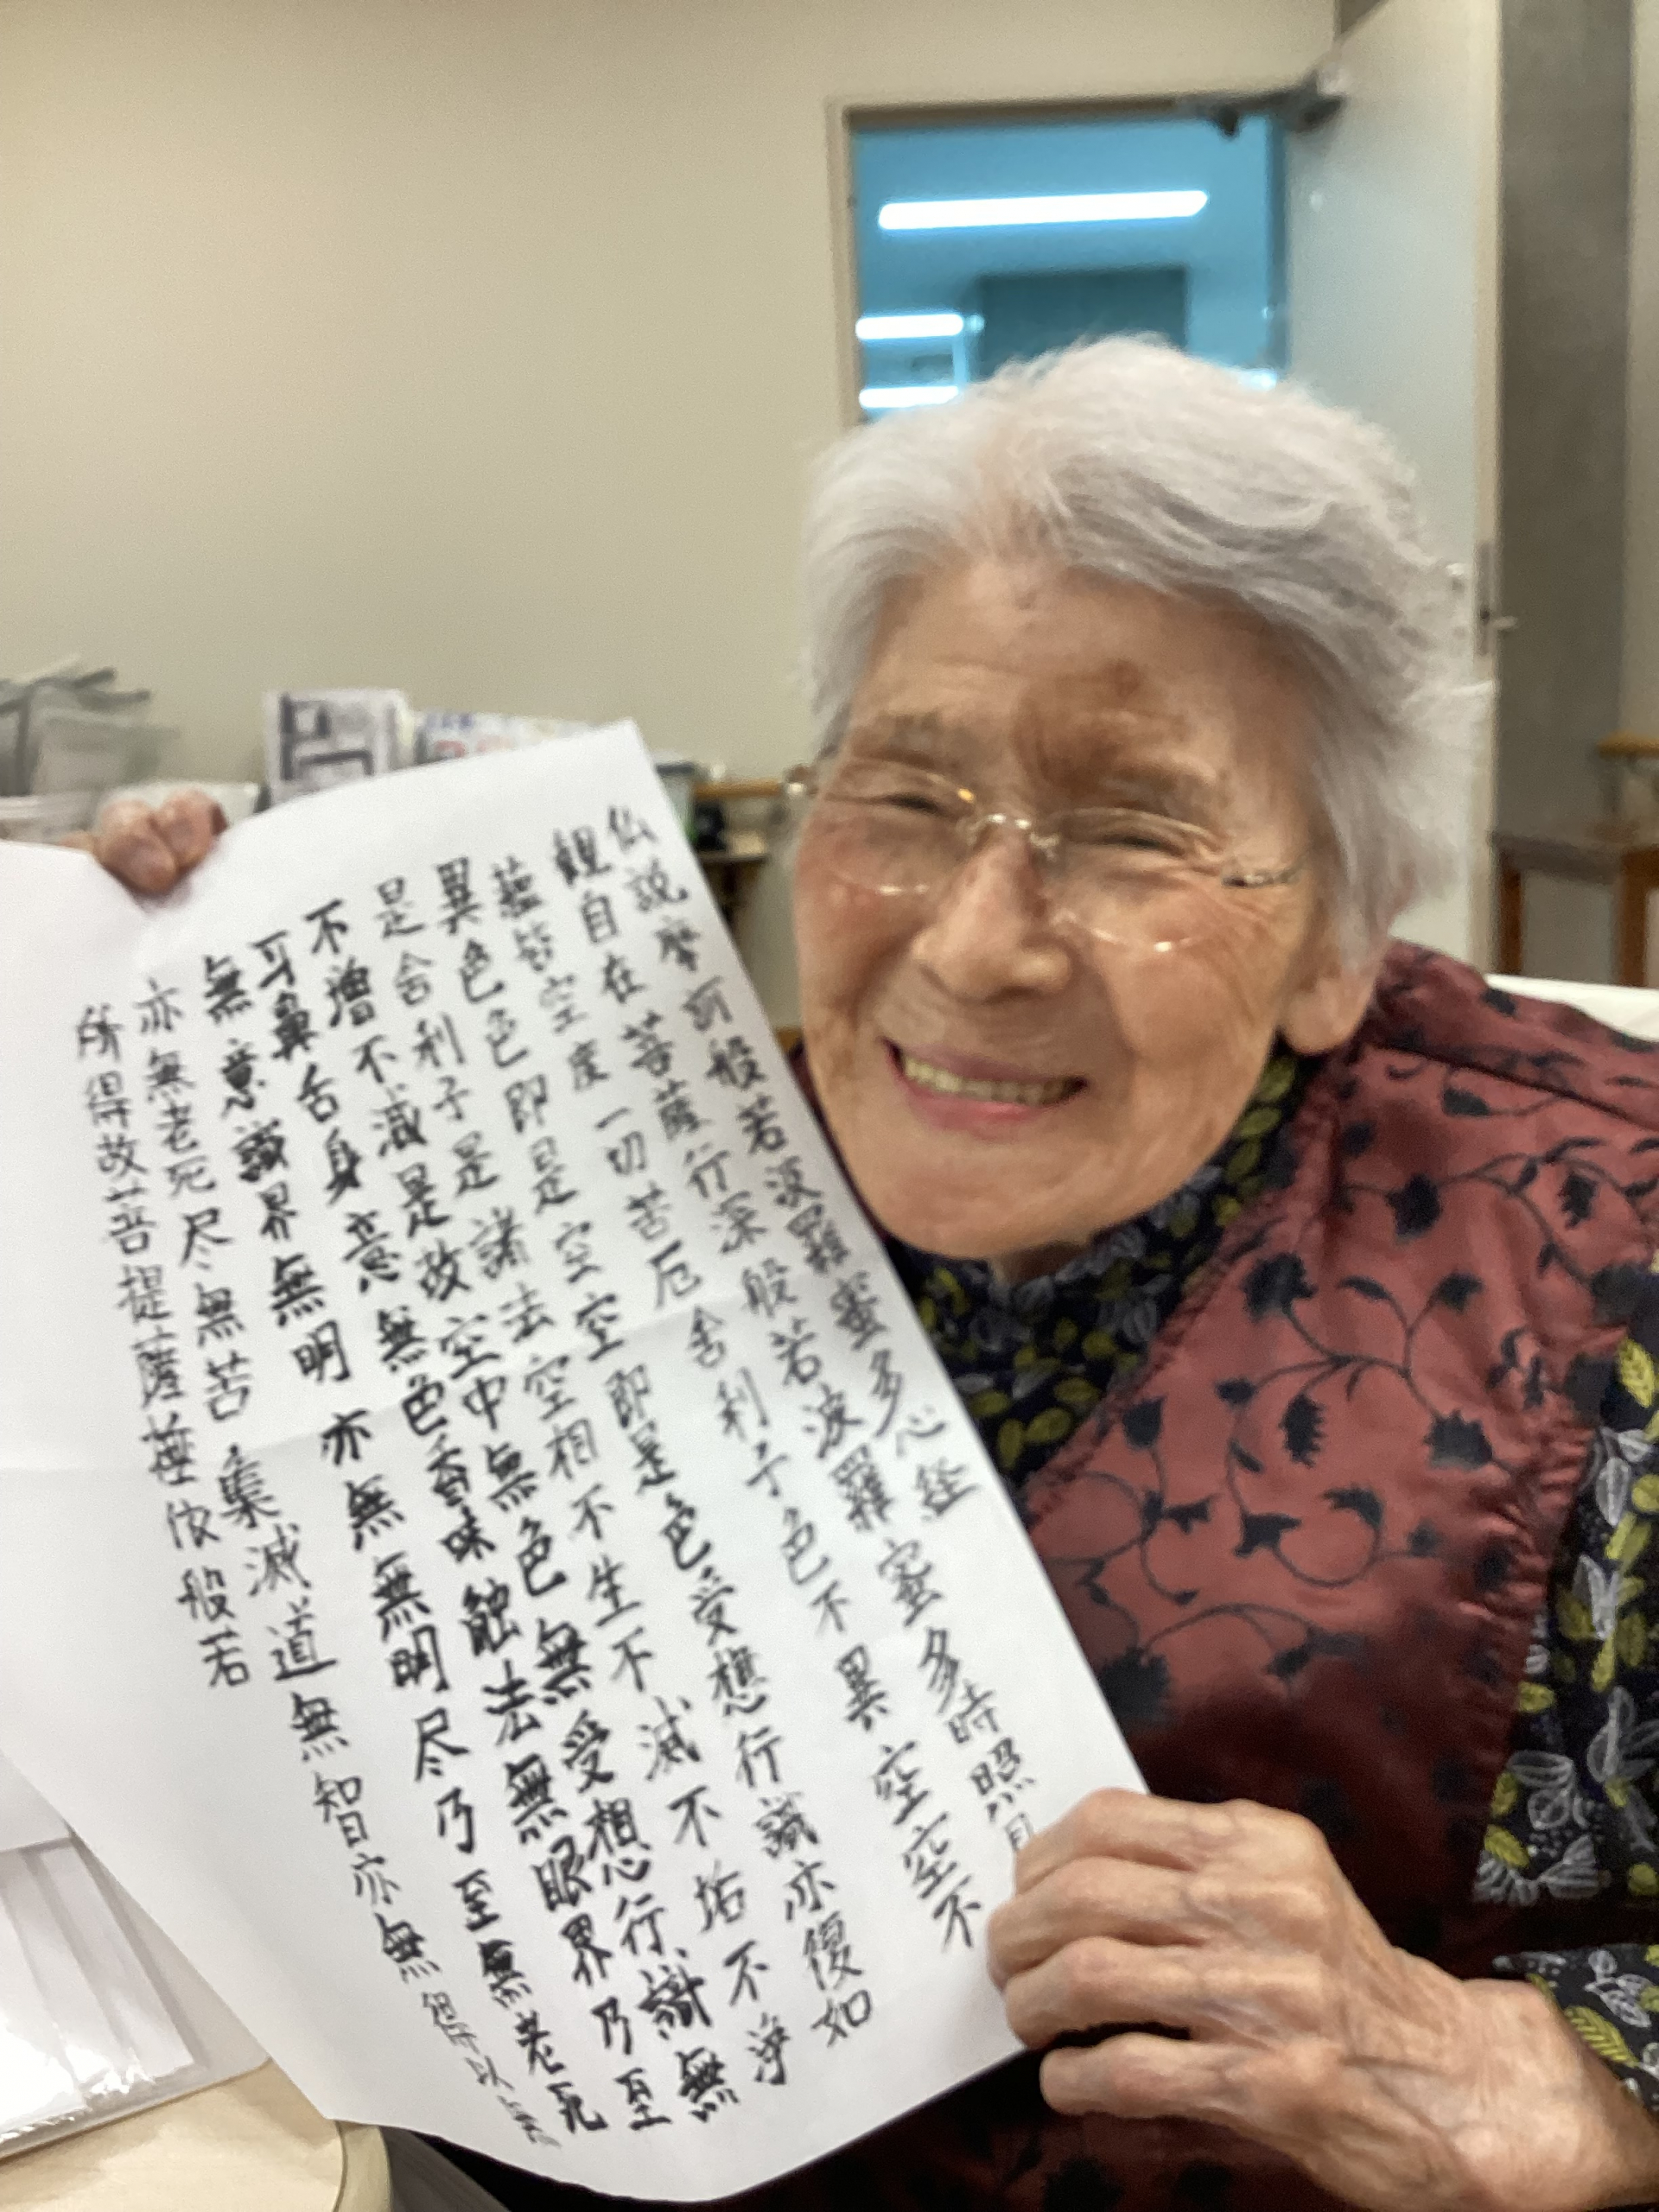 仏説摩訶般若波羅蜜多心経
観自在菩薩行深般若波羅蜜多時照見
蘊皆空度一切苦厄舎利子色不異空空不
異色色即是空空即是色受想行識亦復如
是舎利子是諸法空相不生不滅不垢不浄
不増不減是故空中無色無受想行識無
耳鼻舌身意無色香味触法無眼界乃至
無意識界無明亦無無明尽乃至無老死
亦無老死尽無苦集滅道無智亦無得以無
所得故菩提薩埵依般若